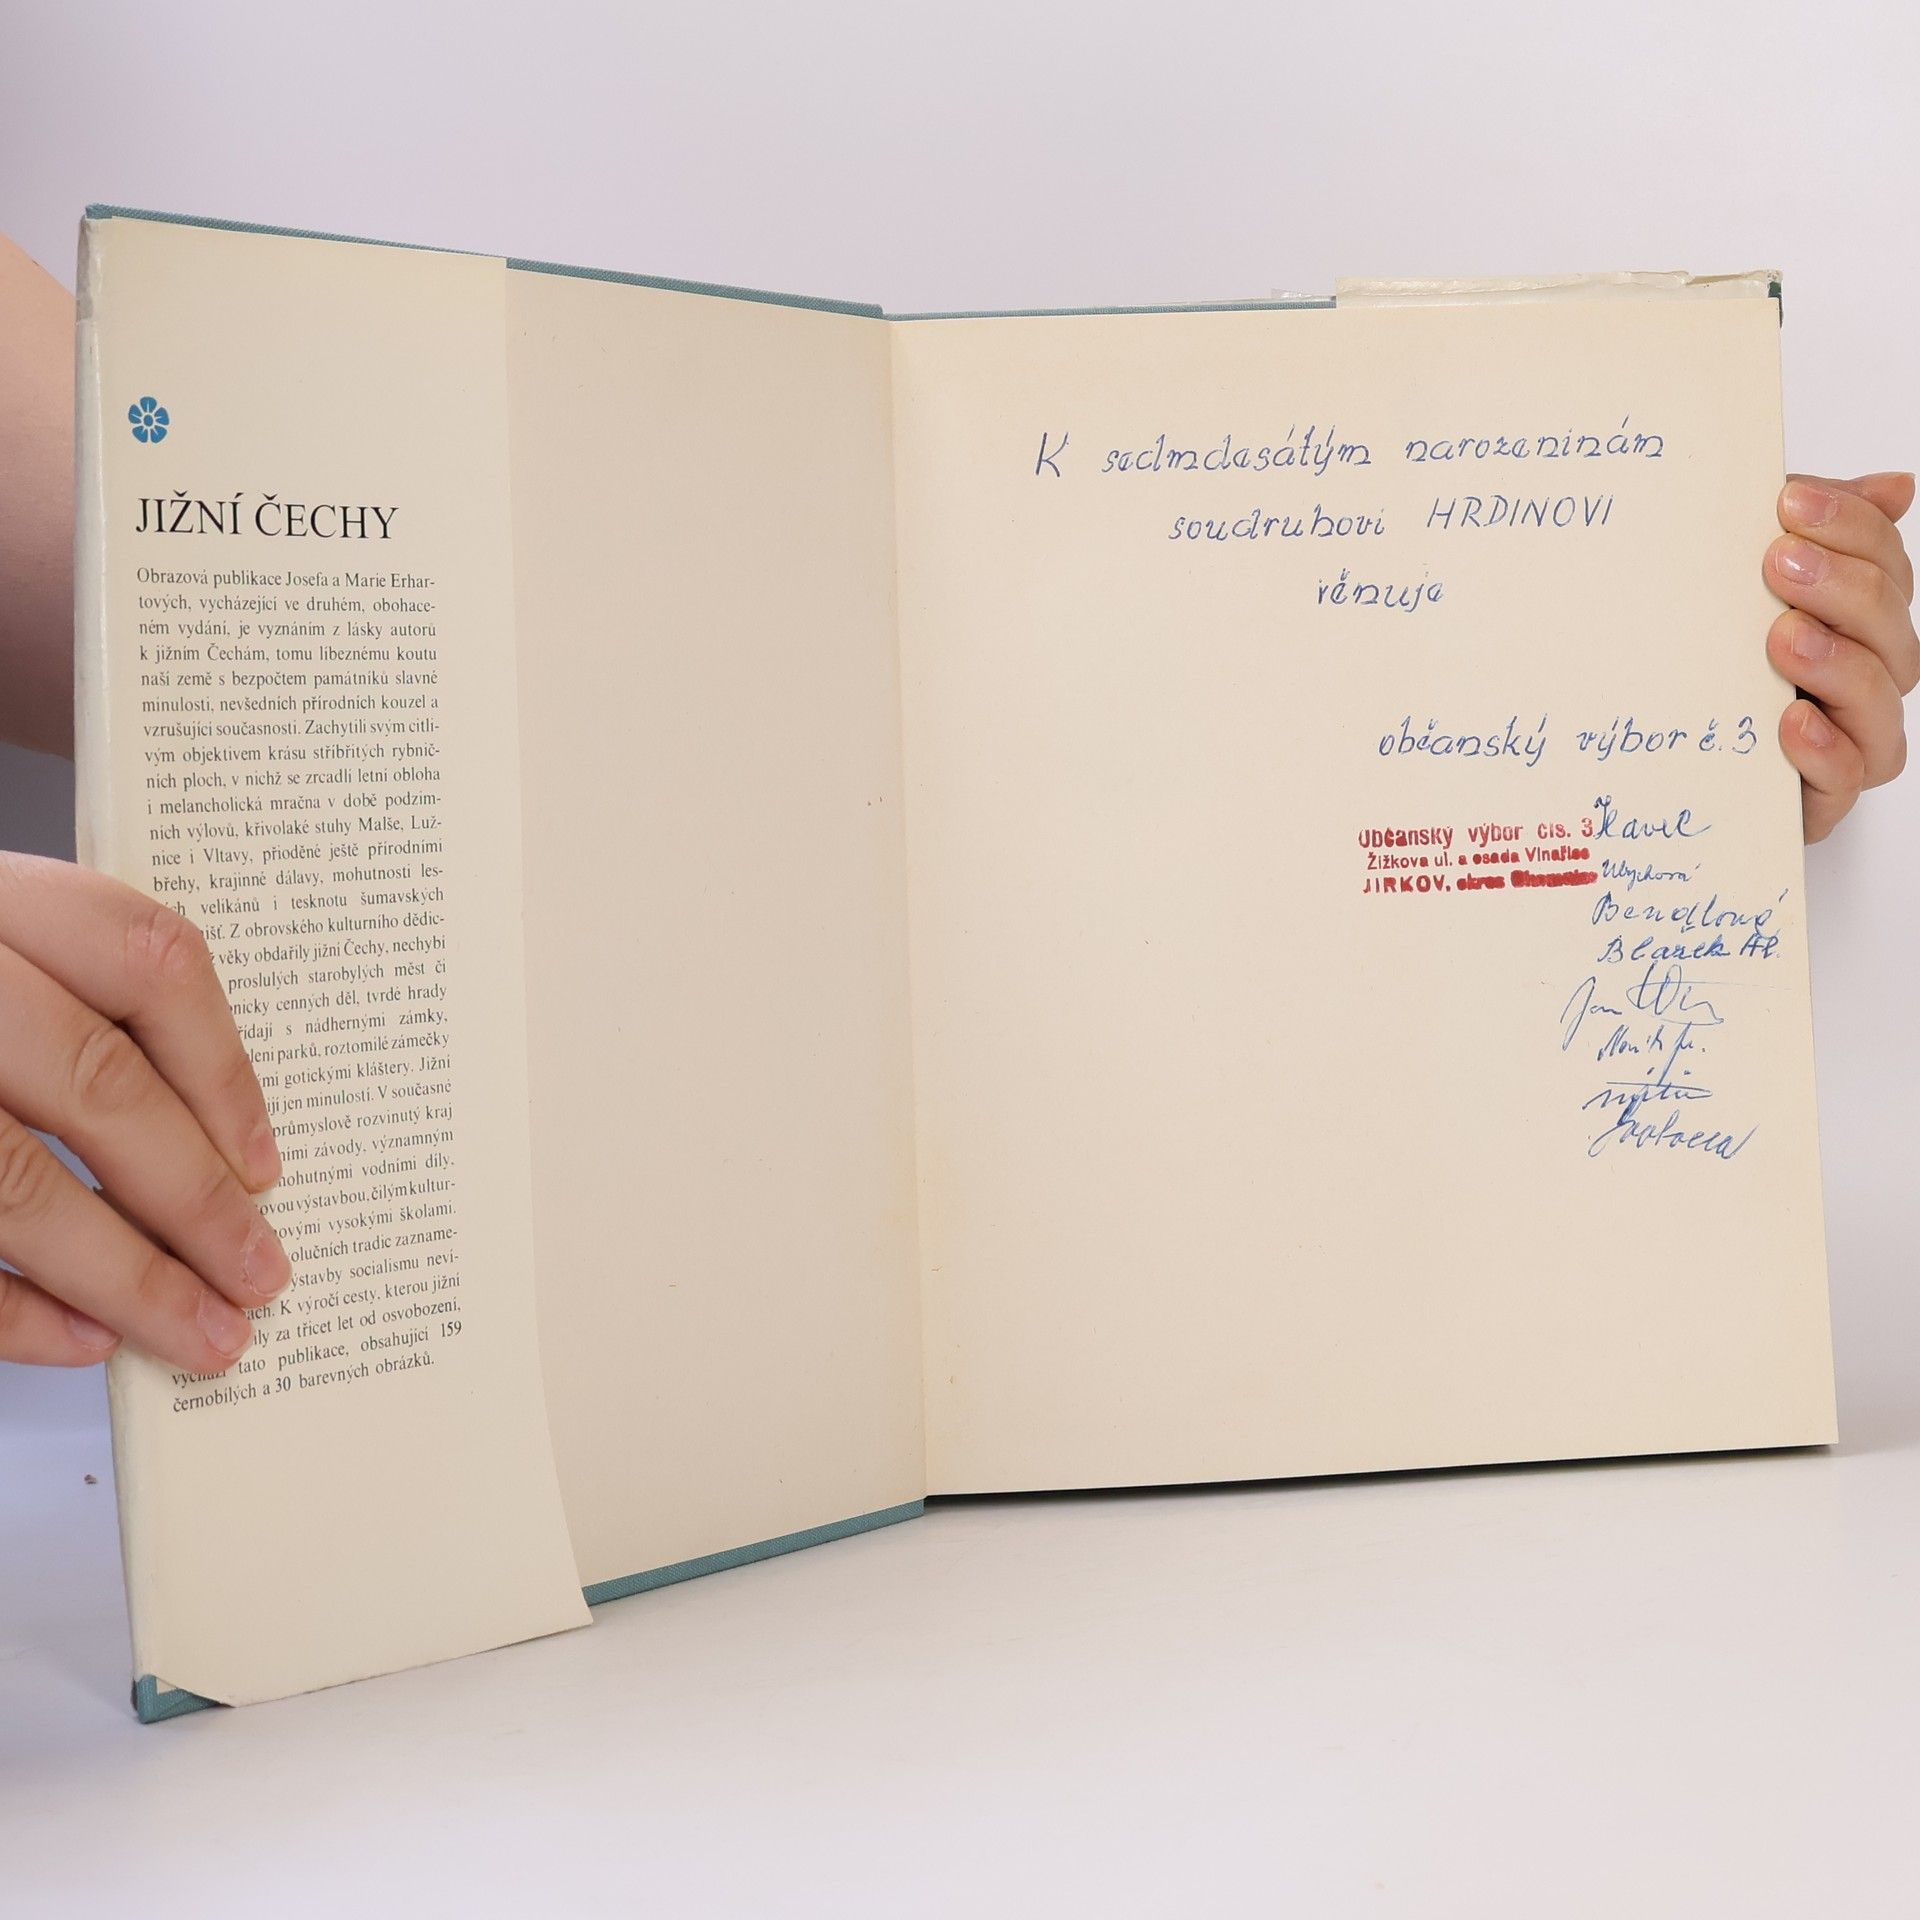 JIŽNÍ ČECHY
Obrazová publikace Josefa a Marie Erhar-
tových, vycházející ve druhém, obohace-
ném vydání, je vyznáním z lásky autorů
k jižním Čechám, tomu líbeznému koutu
naší země s bezpočtem památníků slavné
minulosti, nevšedních přírodních kouzel a
vzrušující současnosti. Zachytili svým citli-
vým objektivem krásu stříbřitých rybnič-
ních ploch, v nichž se zrcadlí letní obloha
i melancholická mračna v době podzim-
ních výlovů, křivolaké stuhy Malše, Luž-
nice i Vltavy, přioděné ještě přírodními
břehy, krajinné dálavy, mohutnosti les-
velikánů i tesknotu šumavských
Z obrovského kulturního dědic-
věky obdařily jižní Čechy, nechybí
proslulých starobylých měst či
cenných děl, tvrdé hrady
s nádhernými zámky,
parků, roztomilé zámečky
gotickými kláštery. Jižní
jen minulostí. V současné
průmyslově rozvinutý kraj
závody, významným
mohutnými vodními díly,
výstavbou, čilým kultur-
novými vysokými školami.
tradic zazname-
výstavby socialismu neví-
K výročí cesty, kterou jižní
za třicet let od osvobození,
vychází tato publikace, obsahující 159
černobílých a 30 barevných obrázků.
K sedmdesátým narozeninám
soudruhovi HRDINOVI
věnuje
občanský výbor č. 3
Občanský výbor čís. 3 Havel
Žižkova ul. a osada Vinařice
JIRKOV, okres Chomutov
Ulrychová
Bendlová
Blažek
Jan